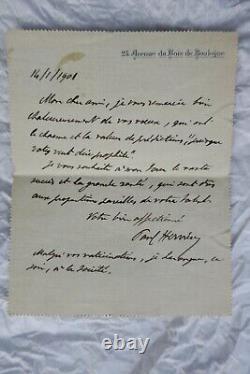 23 Avenue du Bois de Boulogne
14/1/1901
Mon cher ami, je vous remercie bien
chaleureusement de vos vœux, qui ont
le charme et la valeur de prédictions, puisque
vous êtes prophète!
Je vous souhaite à mon tour le vaste
succès et la grande santé, qui sont dûs
aux proportions pareilles de votre talent.
Votre bien affectionné
Paul Hervieu
Malgré vos vaticinations, je
soir, à la Société.